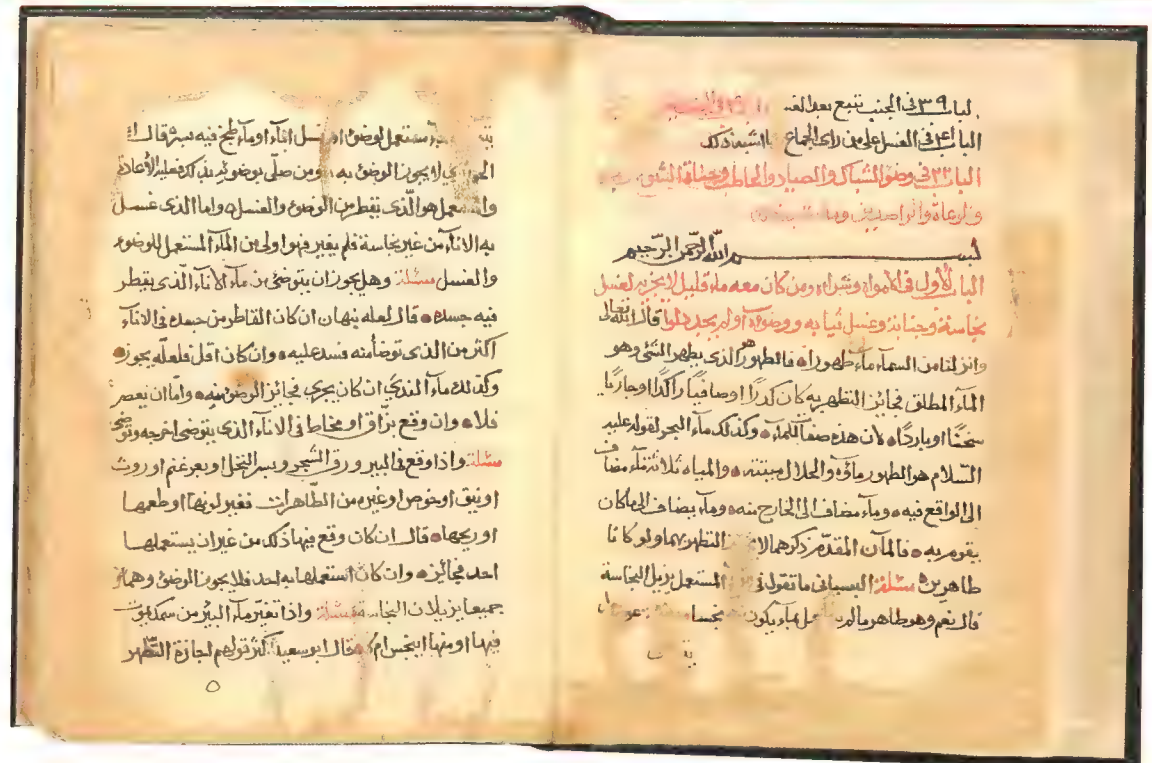 الباب ٣٩ في الجنب تتبع بعد الغسل
الباب في الغسل على من رأى الجماع وما أشبه ذلك
الباب في وضوء الشباك والصياد والحاطب
والرعاة والراصدين
بسم الله الرحمن الرحيم
الباب الأول في الأمواه وشرائه ومن كان معه ماء قليل لا يجزيه لغسل
نجاسة وجنابة وغسل ثيابه ووضوئه أو لم يجد دلوا قال الله تعالى
وانزلنا من السماء ماء طهورا فالطهور هو الذي يطهر الشئ وهو
الماء المطلق فجائز التطهر به كان كدرًا او صافيًا راكدًا او جاريًا
سخنًا او باردًا لان هذه صفات للماء وكذلك ماء البحر لقوله عليه
السلام هو الطهور مائه والحلال ميتته والمياه ثلاثة فماء مضاف
الى الواقع فيه وماء مضاف الى الخارج منه وماء يضاف الى ما كان
يقوم به فالمآن المقدم ذكرهما لا التطهر بهما ولو كانا
طاهرين مسئلة البسياني ما تقول في المستعمل يزيل النجاسة
قال نعم وهو طاهر ما لم يكون نجسا
مستعمل لوضوء او غسل اناء او ماء طبخ فيه بسر قال
لا يجوز الوضوء به ومن صلى بوضوئه بذلك فعليه الأعادة
والمستعمل هو الذي يقطر من الوضوء والغسل واما الذي غسل
به الاناء من غير نجاسة فلم يغير فهو اولى من الماء المستعمل للوضوء
والغسل مسئلة وهل يجوز ان يتوضئ من ماء الاناء الذي يقطر
فيه جسده قال لعله ينهان ان كان القاطر من جسده في الاناء
اكثر من الذي توضأ منه فسد عليه وان كان اقل فلعله يجوز
وكذلك ماء الندي ان كان يجري فجائز الوضوء منه واما ان يعصر
فلا وان وقع بزاق او مخاط في الاناء الذي يتوضى اخرجه وتوضى
مسئلة واذا وقع في البير ورق الشجر وبسر النخل او بعر غنم او روث
او نبق او خوص او غيره من الطاهرات فغير لونها او طعمها
او ريحها قال ان كان وقع فيها ذلك من غير ان يستعملها
احد فجائز وان كان استعملها به احد فلا يجوز الوضوء وهما
جميعا يزيلان النجاسة مسئلة واذا تغير ماء البئر من سمك يموت
فيها او منها اينجس ام لا قال ابو سعيد اكثر قولهم اجازة التطهر